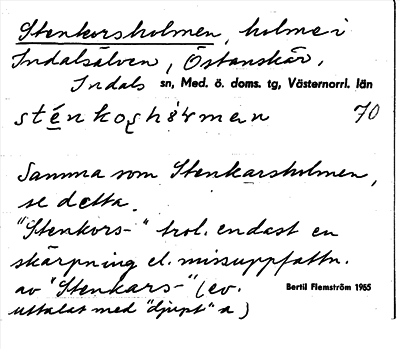 Stenkorsholmen, holme i
Indalsälven, Östanskär,
Indals sn, Med. ö. doms. tg, Västernorrl. län
70
Samma som Stenkarsholmen,
se detta.
"Stenkors-" trol. endast en
skärpning el. missuppfattn.
av "Stenkars-" (ev.
uttalat med "djupt" a)
Bertil Flemström 1965